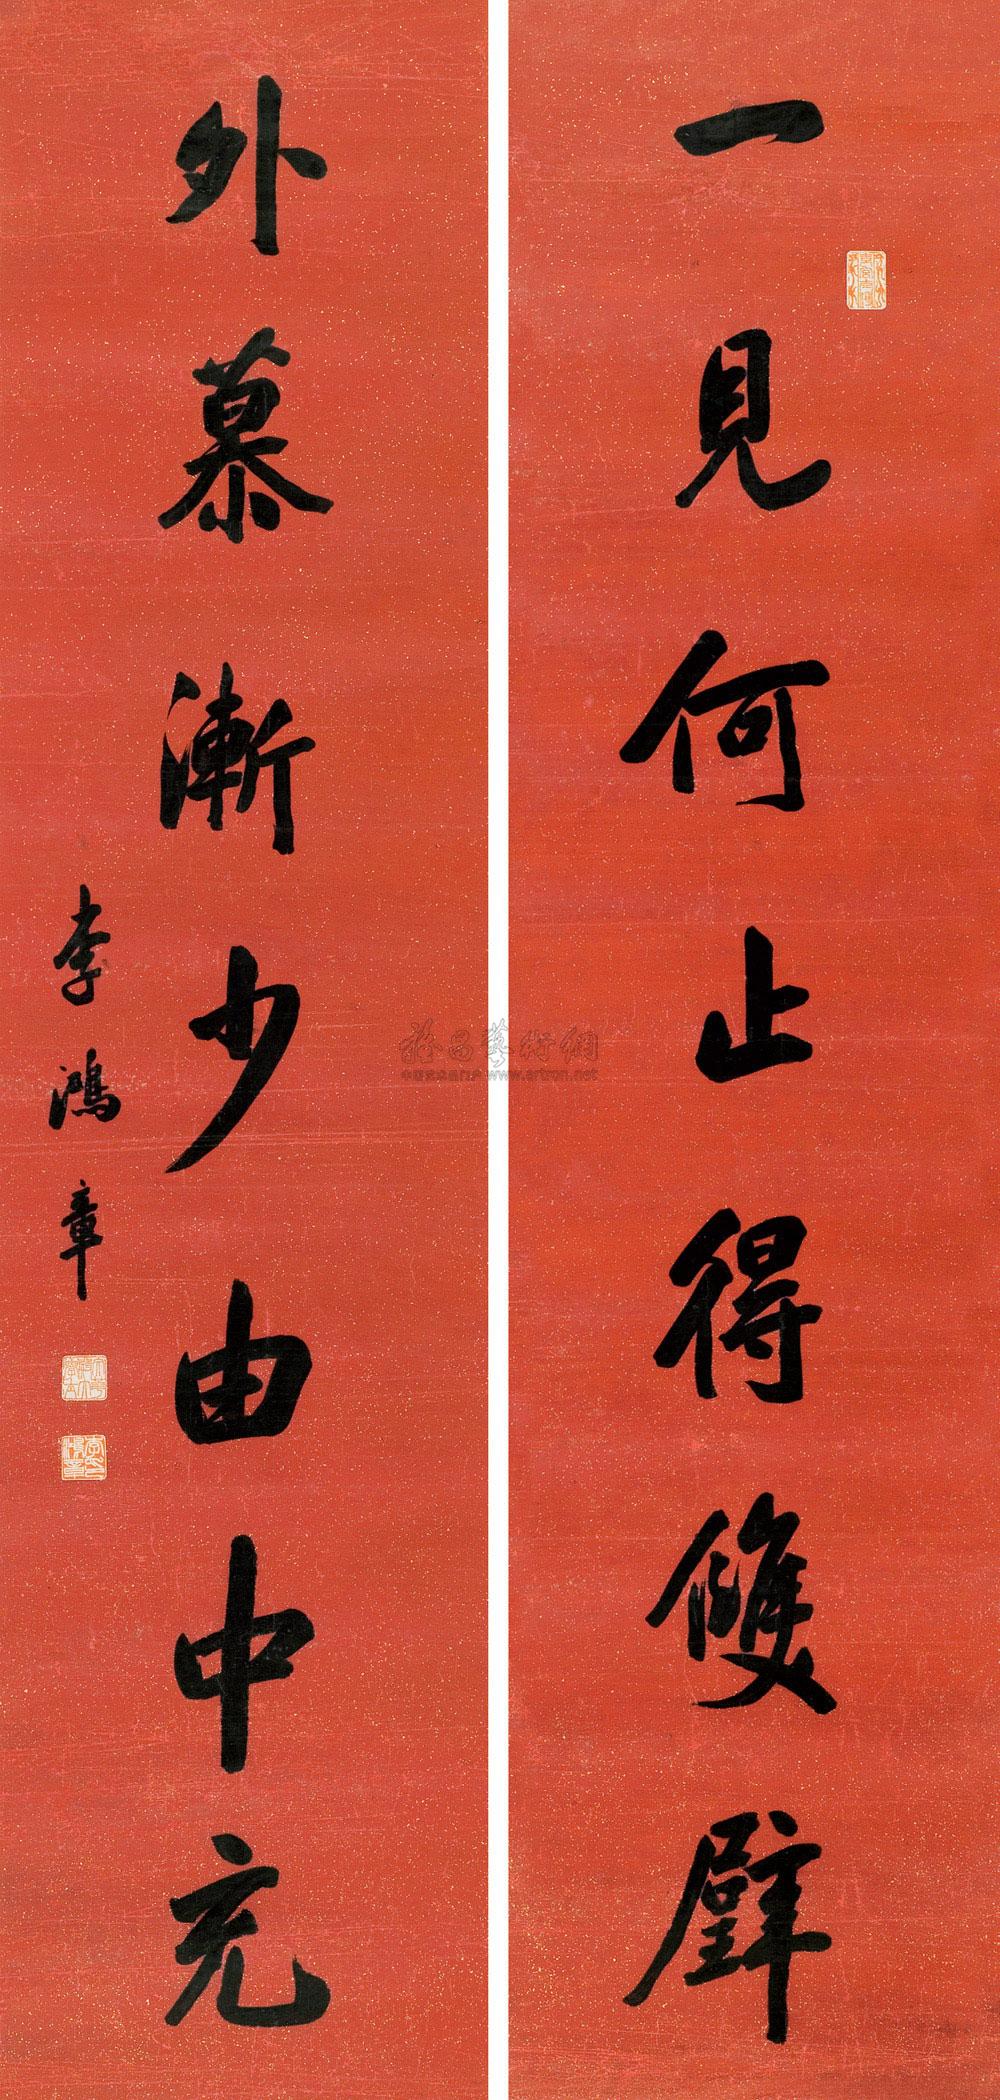 一見何止得雙璧
外慕漸少由中充
李鴻章
李氏鴻章
www.artron.net